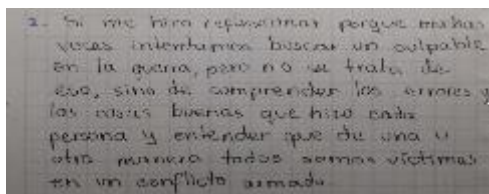 2. Si me hizo reflexionar porque muchas
veces intentamos buscar un culpable
en la guerra, pero no se trata de
eso, sino de comprender los errores y
las cosas buenas que hizo cada
persona y entender que de una u
otra manera todos somos víctimas
en un conflicto armado